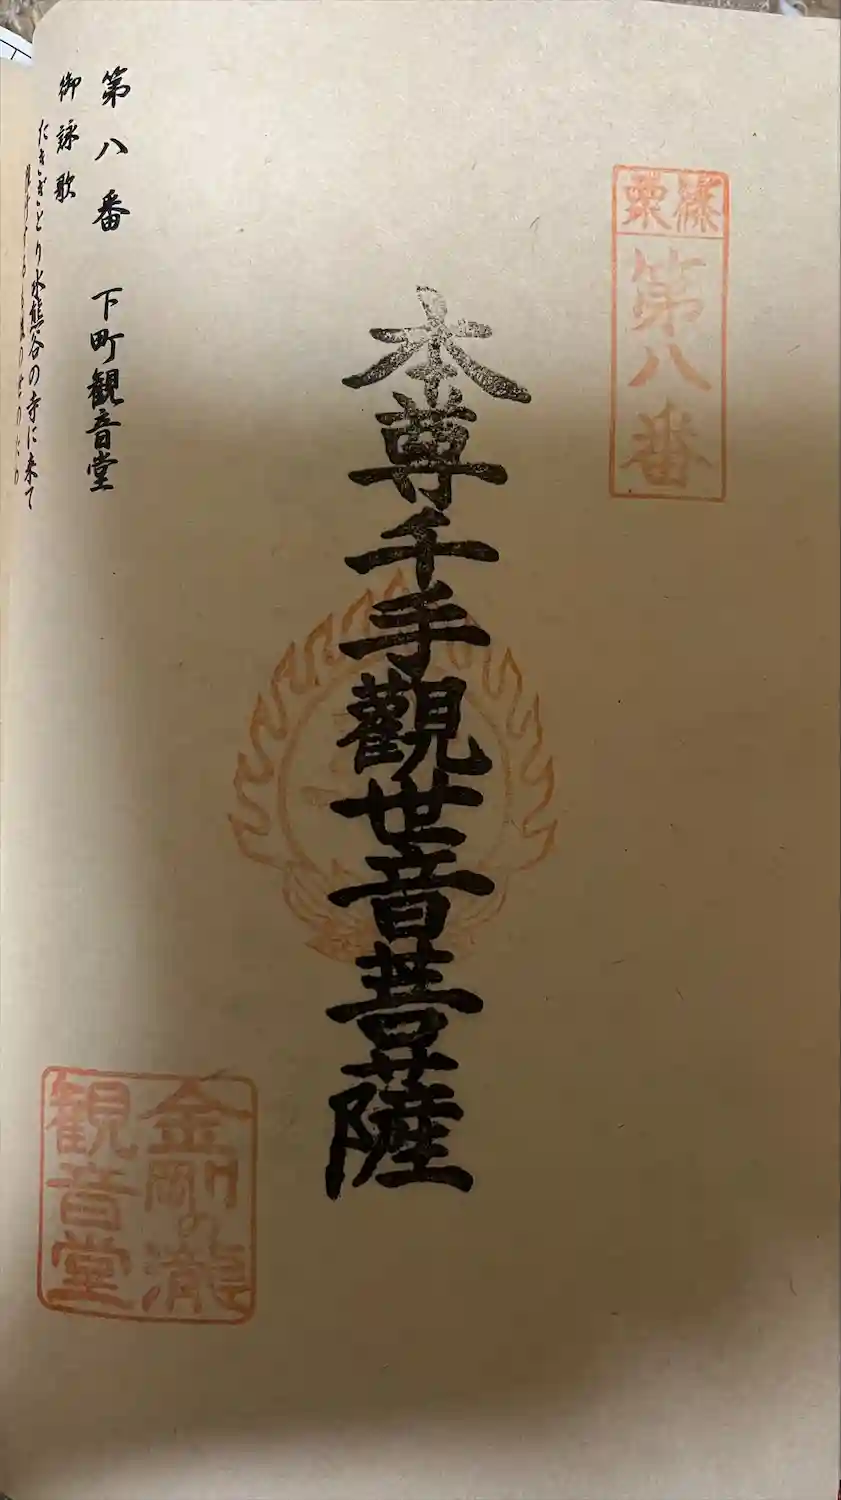 篠栗
第八番
本尊千手觀世音菩薩
第八番 下町観音堂
御詠歌
たきぎとり水熊谷の寺に来て
金剛の瀧
観音堂